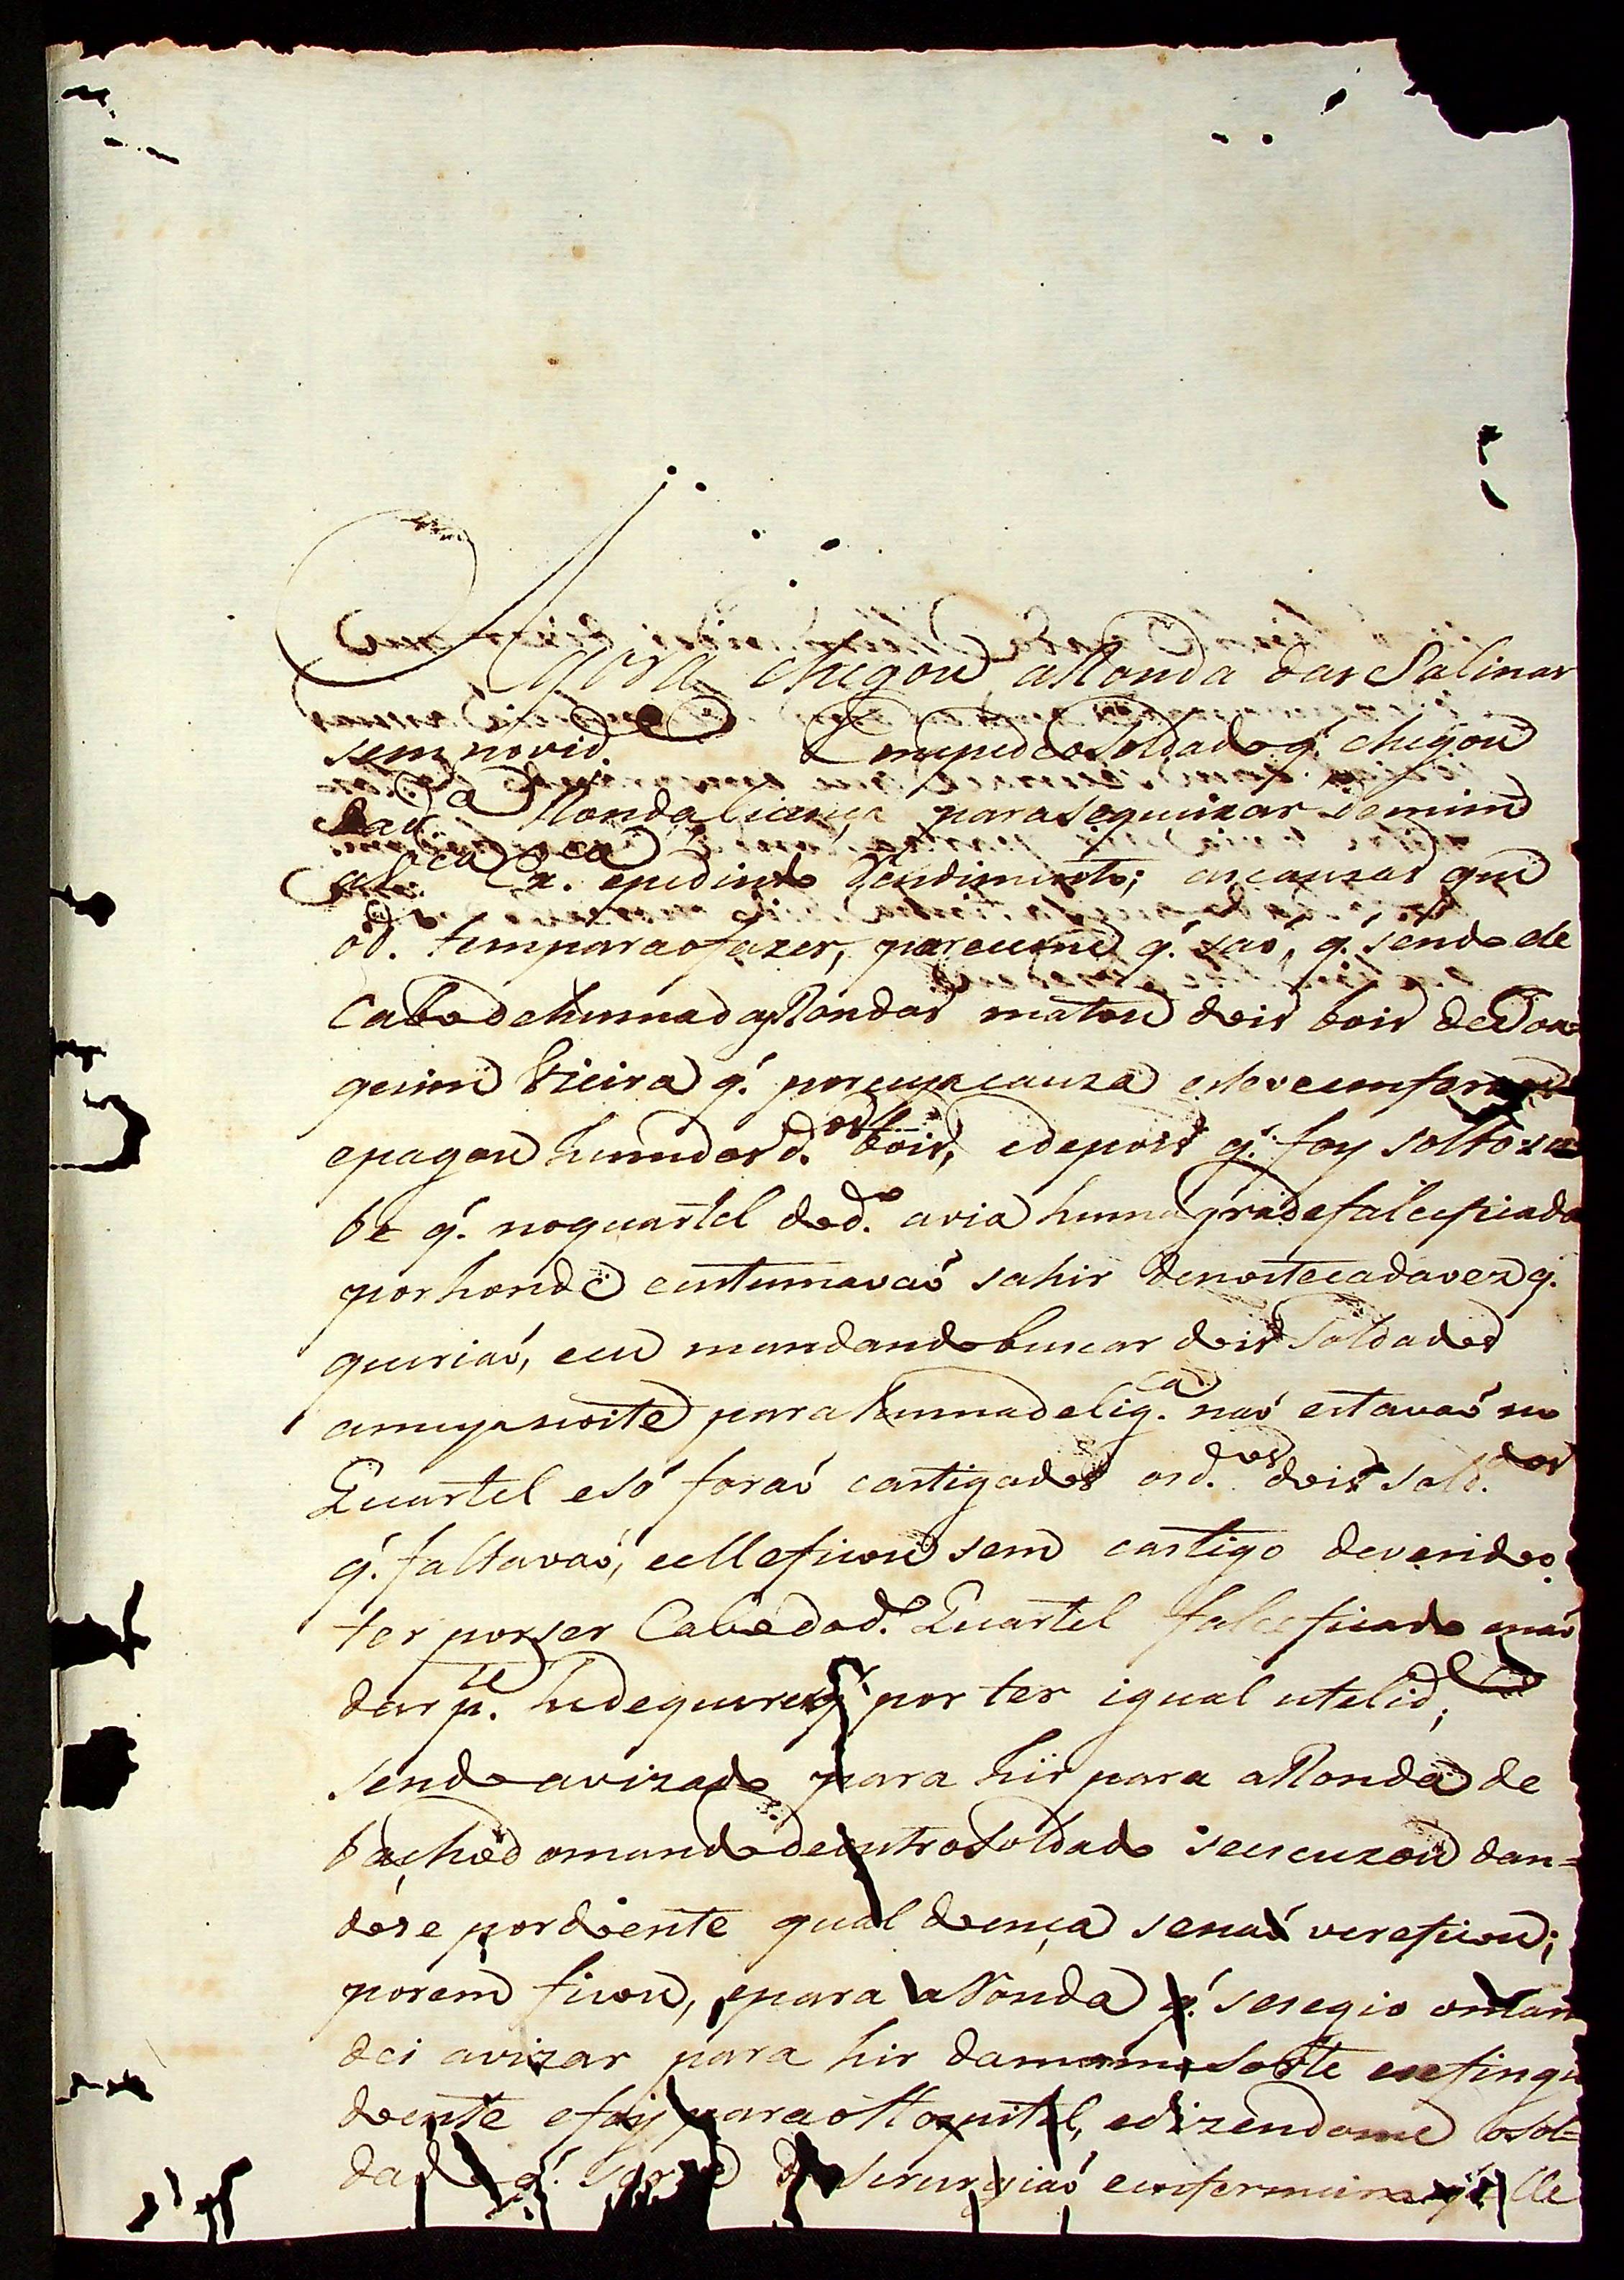 Agora chegou aRonda das Salinas
sem novid.e Empedeosoldado q.' chegou
da d.a Ronda licença para sequeixar demim
a V. Ex.ca epedindo Rendimento; as cauzas que
od. temparaofazer, pareceme q.' saó, q.' sendo ele
Cabo dehumadas Rondas matou dois bois de Joa-
quim Vieira q.' porcuja cauza esteve emfer
epagou humdos d.os bois, edepois q.' foy soltosou-
be q.' noquartel dod.o avia huma grade falcificada
por honde custumavaó sahir denoitecadavez q.'
queriaó, eeu mandandobuscar dois Soldados
amejanoite para humadelig.ca naó estavaó no
Quartel esó foraó castigados osd.os dois sold.dos
q.' faltavaó, eellefícou sem castigo devendoo
ter porser Cabodod.o Quartel falceficado enaó
dar p.te hedequerer por ter igual utelid.e;
sendoavizado para hir para aRonda de
baxho d omando deoutrosoldado seescuzou dan-
dose pordoente qual doença senaó vereficou;
porem ficou, epara aRonda q.' sesegio oman
dei avizar para hir damesma Sorte esefingio
doente efoy paraoHospital, edizendome osol-
dado q.' Serurgiaó enfermeiro elle